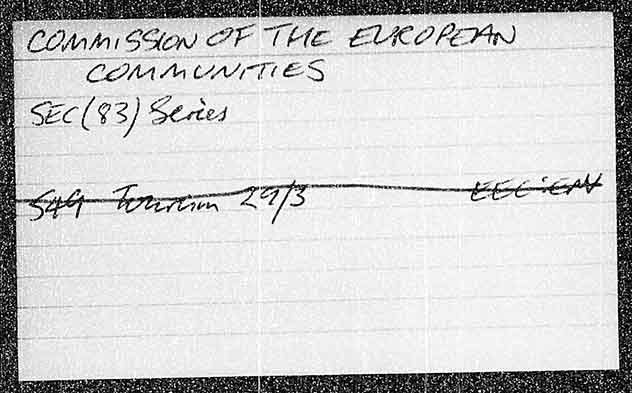 COMMISSION OF THE EUROPEAN
COMMUNITIES
SEC(83) Series
549 Tourism 29/3 EEC:EM